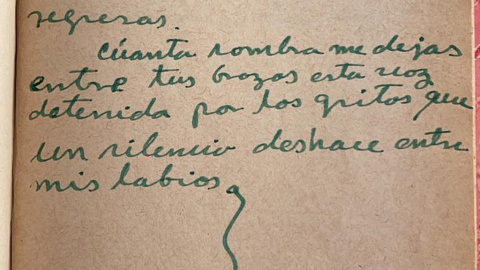 regresas.
Cúanta sombra me dejas
entre tus brazos esta voz
detenida por los gritos que
un silencio deshace entre
mis labios.